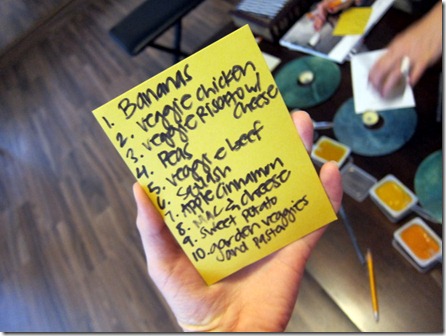 1. Bananas
2. veggie chicken
3. veggie Risotto w/
cheese
4. Peas
5. veggie beef
6. Squash
7. Apple Cinnamon
8. Mac & cheese
9. sweet potato
10. garden veggies
and pastaggies